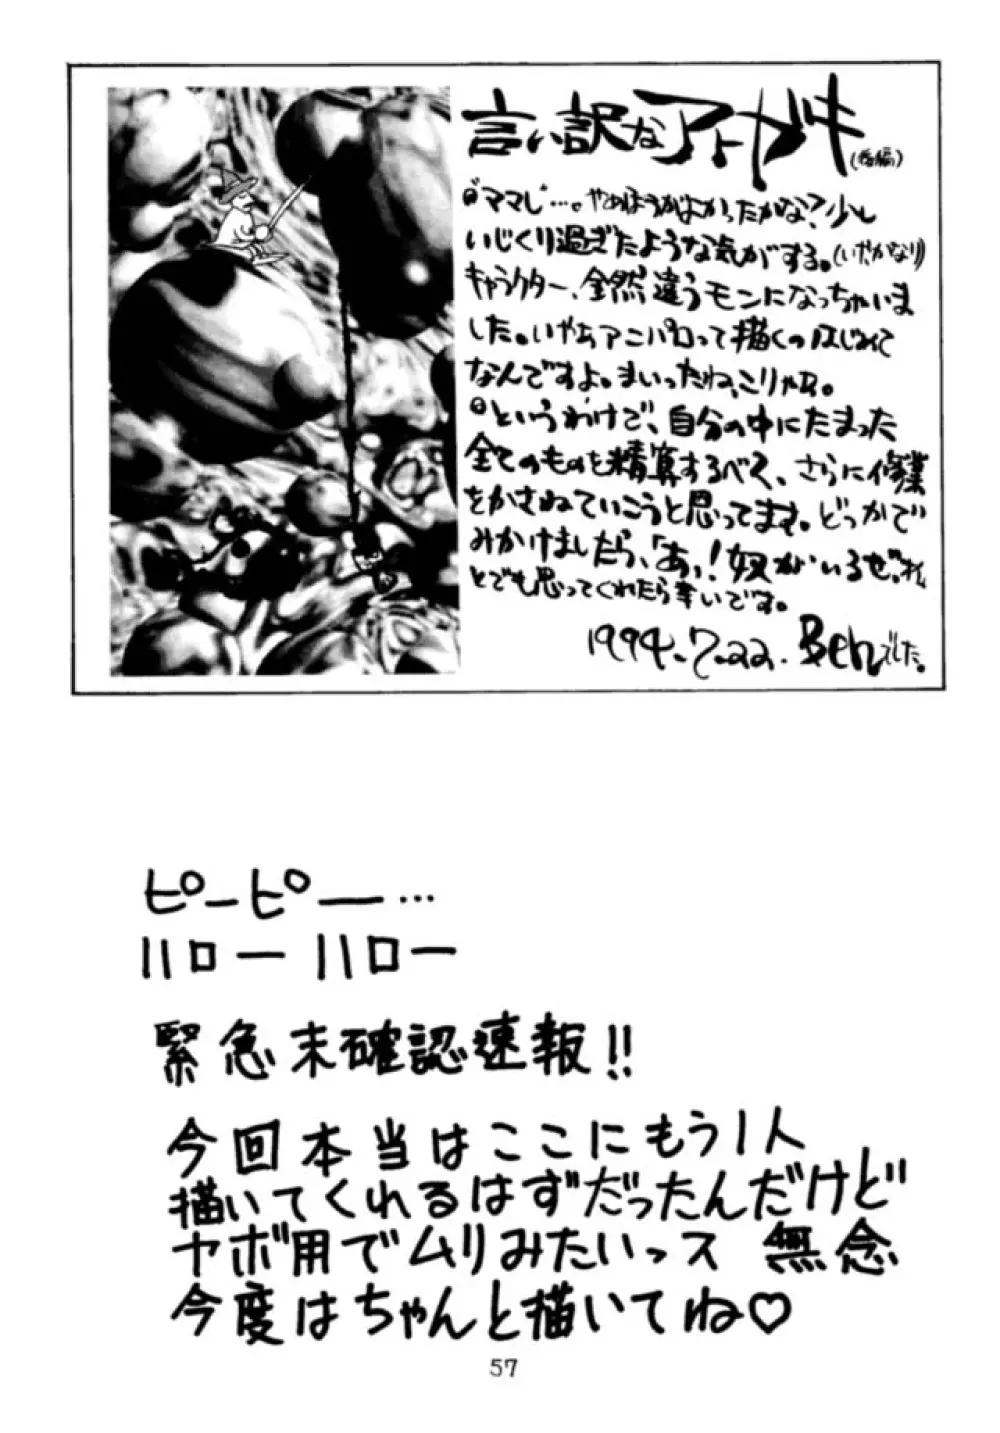 言い訳なアトガキ(番編)
◎ママレ…。やめほうがよかったかな?少し
いじくり過ぎたような気がする。(いやかなり)
キャラクター、全然違うモンになっちゃいま
した。いやぁアニパロって描くのはじめて
なんですよ。まいったね、こりゃ。
◎というわけで、自分の中にたまった
全てのものを精算するべく、さらに修業
をかさねていこうと思ってます。どっかで
みかけましたら、「あっ!奴がいるぜ、
とでも思ってくれたら幸いです。
1994.7.22. Benでした。
ピーピー…
ハローハロー
緊急未確認速報!!
今回本当はここにもう1人
描いてくれるはずだったんだけど
ヤボ用でムリみたいっス 無念
今度はちゃんと描いてね♡
57